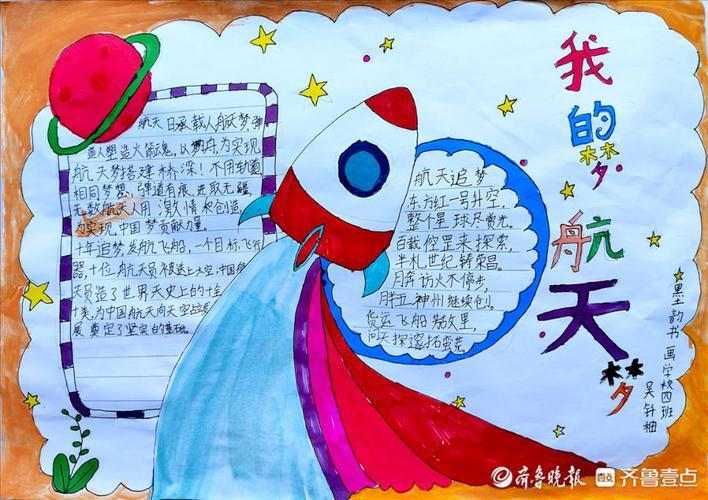 我的梦航天梦
航天日承载人航天梦,弹
造人塑造火箭魂,以 舟,为实现
航天梦搭建桥深!不用轨道
相同梦想,弹道有痕,进取无疆
无数航天人用激情水创造
为实现,中国梦贡献力量。
十年追梦,发航飞船,一个目标,飞行
器,十位航天员被送上太空,中国航
天员造了世界天史上的十全
十美,为中国航天向天空站
展奠定了坚实的基础。
航天追梦
东方红一号升空,
整个星球尽赏光。
百载倥里来探索,
半札世纪铸荣昌。
月奔访火不停步,
月五神州继续创。
货运飞船 故里,
问天探邃拓蛮荒。
墨韵书画学校四班
吴 柚
齐鲁晚报
齐鲁壹点